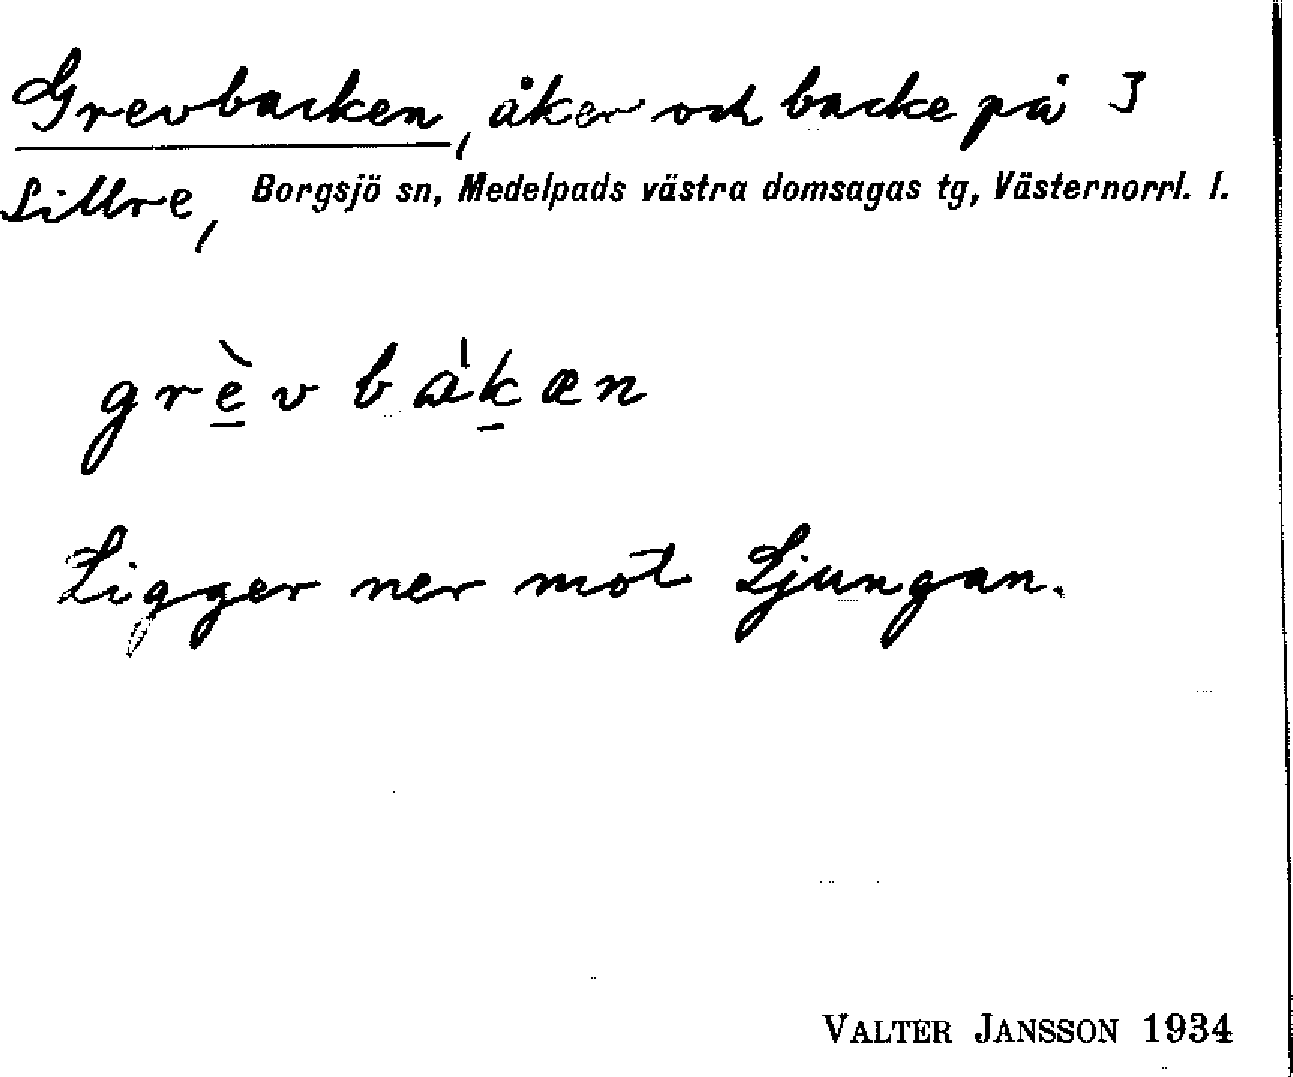 Grevbacken, åker och backe på 3
Sillre, Borgsjö sn, Medelpads västra domsagas tg, Västernorrl. l.
grèv bákæn
Ligger ner mot Ljungan.
VALTER JANSSON 1934